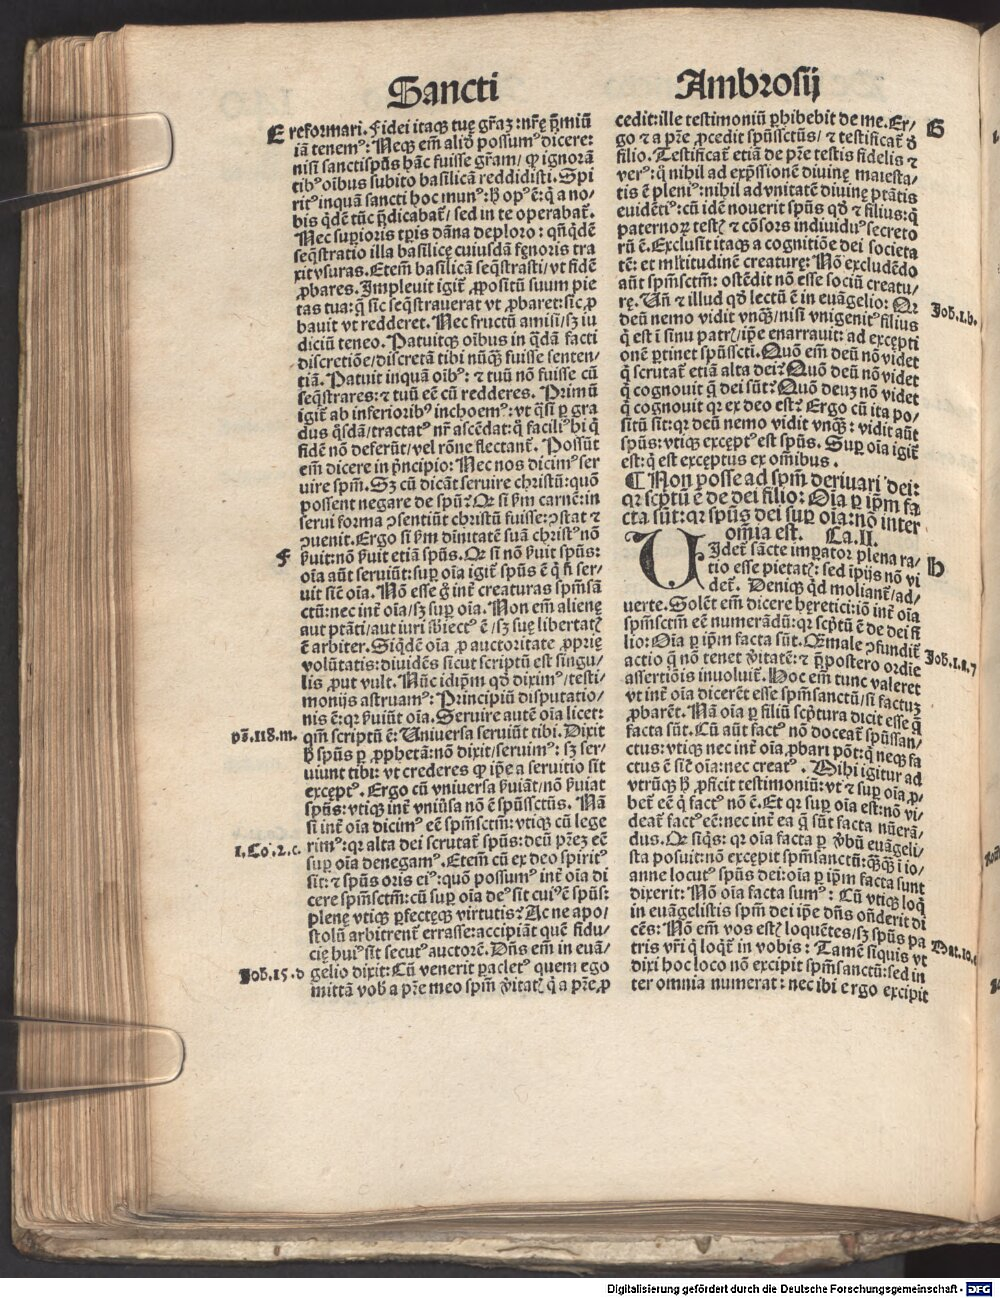 Sancti Ambrosij
E reformari. Fidei itaqꝫ tuę gr̃aꝫ: nr̃ę p̃miũ
iã tenemꝰ: Neqꝫ em̃ aliď possumꝰ dicere:
nisi sanctisp̃us hãc fuisse gr̃am/ ꝙ ignorã
tibꝰ oĩbus subito basilicã reddidisti. Spi
ritꝰ inquã sancti hoc munꝰ: h̊ opꝰ ẽ: q̃ a no/
bis q̃dẽ tũc p̃dicabat̃/ sed in te operabat̃.
Nec supioris tp̃is dãna deploro: qñq̃dẽ
seq̃stratio illa basilicę cuiusdã fęnoris tra
xit vsuras. Etem̃ basilicã seq̃strasti/ vt fidẽ
ꝓbares. Impleuit igit̃ ꝓpositũ suum pie
tas tua: q̃ sic seq̃strauerat vt ꝓbaret: sic ꝓ
bauit vt redderet. Nec fructũ amisi/ sꝫ iu
diciũ teneo. Patuitqꝫ oĩbus in q̃dã facti
discretiõe/ discretã tibi nũq̃ fuisse senten/
tiã. Patuit inquã oĩbꝰ: ⁊ tuũ nõ fuisse cũ
seq̃strares: ⁊ tuũ eẽ cũ redderes. Primũ
igit̃ ab inferioribꝰ inchoemꝰ: vt q̃si ꝑ gra
dus q̃sdã/ tractatꝰ nr̃ ascẽdat: q̃ faciliꝰ hi q̃
fidẽ nõ deferũt/ vel rõne flectant̃. Possũt
em̃ dicere in p̃ncipio: Nec nos dicimꝰ ser
uire sp̃m. Sꝫ cũ dicãt seruire christũ: quõ
possent negare de sp̃u? Qꝛ si ẜm carnẽ: in
serui forma ↄsentiũt christũ fuisse: ↄstat ⁊
ↄuenit. Ergo si ẜm diuinitatẽ suã christꝰ nõ
F ẜuit: nõ ẜuit etiã sp̃us. Qꝛ si nõ ẜuit sp̃us:
oĩa aũt seruiũt: sup̃ oĩa igit̃ sp̃us ẽ q̃ ñ ser/
uit sic̃ oĩa. Nõ esse g̊ int̃ creaturas sp̃msã
ctũ: nec int̃ oĩa/ sꝫ sup̃ oĩa. Non em̃ alienę
aut ptãti/ aut iuri sb̃iectꝰ ẽ/ sꝫ suę libertatꝭ
ẽ arbiter. Siq̃dẽ oĩa ꝓ auctoritate ꝓprię
volũtatis: diuidẽs sicut scriptũ est singu/
lis ꝓut vult. Nũc idip̃m qď diximꝰ/ testi/
monijs astruamꝰ: Principiũ disputatio/
nis ẽ: qꝛ ẜuiũt oĩa. Seruire autẽ oĩa licet:
pš.118.m. qm̃ scriptũ ẽ: Vniuersa seruiũt tibi. Dixit
h̊ sp̃us ꝑ ꝓphetã: nõ dixit/ seruimꝰ: sꝫ ser/
uiunt tibi: vt crederes ꝙ ip̃e a seruitio sit
exceptꝰ. Ergo cũ vniuersa ẜuiãt/ nõ ẜuiat
sp̃us: vtiqꝫ int̃ vniũsa nõ ẽ sp̃ussctũs. Nã
si int̃ oĩa dicimꝰ eẽ sp̃msctm̃: vtiqꝫ cũ lege
1.Co.2.c. rimꝰ: qꝛ alta dei scrutat̃ sp̃us: deũ pr̃eꝫ eẽ
sup̃ oĩa denegamꝰ. Etem̃ cũ ex deo spiritꝰ
sit: ⁊ sp̃us oris eiꝰ: quõ possumꝰ int̃ oĩa di
cere sp̃msctm̃: cũ sup̃ oĩa deꝰ sit cuiꝰ ẽ sp̃us:
plenę vtiqꝫ ꝑfectęqꝫ virtutis? Ac ne apo/
stolũ arbitrent̃ errasse: accipiãt quẽ fidu/
cię huiꝰ sit secutꝰ auctorẽ. Dñs em̃ in euã/
Joh.15.d gelio dixit: Cũ venerit paracletꝰ quem ego
mittã vob̃ a pr̃e meo sp̃m ṽitatꝭ q̃ a pr̃e ꝓ
cedit: ille testimoniũ ꝑhibebit de me. Er/ G
go ⁊ a pr̃e ꝓcedit sp̃ussctũs/ ⁊ testificat̃ ď
filio. Testificat̃ etiã de pr̃e testis fidelis ⁊
verꝰ: q̃ nihil ad exp̃ssionẽ diuinę maiesta/
tis ẽ pleniꝰ: nihil ad vnitatẽ diuinę ptãtis
euidẽtiꝰ: cũ idẽ nouerit sp̃us qď ⁊ filius: q̃
paternoꝝ testꝭ ⁊ cõsors indiuiduꝰ secreto
rũ ẽ. Exclusit itaqꝫ a cognitiõe dei societa
tẽ: et multitudinẽ creaturę: Nõ excludẽdo
aũt sp̃msctm̃: ostẽdit nõ esse sociũ creatu/
rę. Uñ ⁊ illud qď lectũ ẽ in euãgelio: Qꝛ
deũ nemo vidit vnqꝫ̃/ nisi vnigenitꝰ filius Joh.1.b.
q̃ est i sinu patrꝭ/ ip̃e enarrauit: ad excepti
onẽ ꝑtinet sp̃usscti. Quõ em̃ deũ nõ videt
q̃ scrutat̃ etiã alta dei? Quõ deũ nõ videt
q̃ cognouit q̃ dei sũt? Quõ deuꝫ nõ videt
q̃ cognouit qꝛ ex deo est? Ergo cũ ita po/
sitũ sit: qꝛ deũ nemo vidit vnqꝫ̃: vidit aũt
sp̃us: vtiqꝫ exceptꝰ est sp̃us. Sup̃ oĩa igit̃
est: q̃ est exceptus ex omĩbus.
¶ Non posse ad sp̃m deriuari dei:
qꝛ scp̃tũ ẽ de dei filio: Oĩa ꝑ ip̃m fa
cta sũt: qꝛ sp̃us dei sup̃ oĩa: nõ inter
omĩa est. Ca.II.
UIdet̃ sãcte imp̃ator plena ra/ H
tio esse pietatꝭ: sed ip̃ijs nõ vi
det̃. Deniqꝫ qď moliant̃/ ad/
uerte. Solẽt em̃ dicere hęretici: iõ int̃ oĩa
sp̃msctm̃ eẽ numerãdũ: qꝛ scp̃tũ ẽ de dei fi
lio: Oĩa ꝑ ip̃m facta sũt. Qꝫ male ↄfundit̃
actio q̃ nõ tenet ṽitatẽ: ⁊ p̃postero ordie Joh.1.a.7
assertiõis inuoluit̃. Hoc em̃ tunc valeret
vt int̃ oĩa dicerẽt esse sp̃msanctũ/ si factuꝫ
ꝓbarẽt. Nã oĩa ꝑ filiũ scp̃tura dicit esse q̃
facta sũt. Cũ aũt factꝰ nõ doceat̃ sp̃ussan/
ctus: vtiqꝫ nec int̃ oĩa ꝓbari põt: q̃ neqꝫ fa
ctus ẽ sic̃ oĩa: nec creatꝰ. Mihi igitur ad
vtrũqꝫ h̊ ꝓficit testimoniũ: vt ⁊ sup̃ oĩa ꝓ/
bet̃ eẽ q̃ factꝰ nõ ẽ. Et qꝛ sup̃ oĩa est: nõ vi/
deat̃ factꝰ eẽ: nec int̃ ea q̃ sũt facta nũerã/
dus. Qꝛ siq̃s: qꝛ oĩa facta ꝑ ṽbũ euãgeli/
sta posuit: nõ excepit sp̃msanctũ: q̃qꝫ̃ i io/
anne locutꝰ sp̃us dei: oĩa ꝑ ip̃m facta sunt
dixerit: Nõ oĩa facta sumꝰ: Cũ vtiqꝫ loq̃
in euãgelistis sp̃m dei ip̃e dñs oñderit di
cẽs: Nõ em̃ vos estꝭ loquẽtes/ sꝫ sp̃us pa Mat.10.c
tris vr̃i q̃ loqt̃ in vobis: Tamẽ siquis vt
dixi hoc loco nõ excipit sp̃msanctũ: sed in
ter omnia numerat: nec ibi ergo excipit
Digitalisierung gefördert durch die Deutsche Forschungsgemeinschaft - DFG